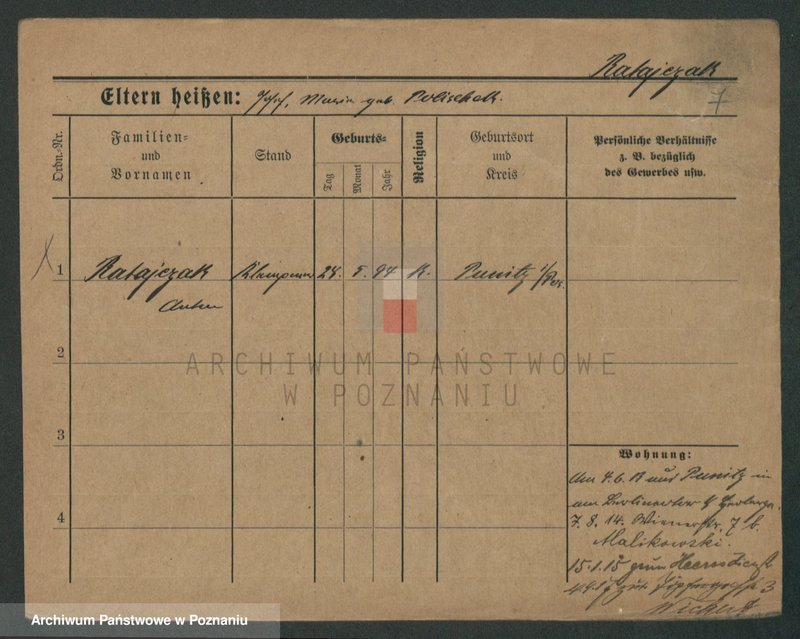 Ratajczak
7
Eltern heißen: Josef, Maria geb.
Ordn.-Nr.
Familien-
und
Vornamen
Stand
Geburts-
Tag
Monat
Jahr
Religion
Geburtsort
und
Kreis
Persönliche Verhältnisse
z. B. bezüglich
des Gewerbes usw.
1 Ratajczak Klempner 24. 5. 94 K. Punitz i/Pos.
Anton
2
ARCHIWUM PAŃSTWOWE
W POZNANIU
3
4
Wohnung:
Am 4.6. aus Punitz in
am Berlinertor
7. 8. 14. Wienerstr. 7 b.
Malikowski.
15.1.15 zum Heeresdienst
3
Archiwum Państwowe w Poznaniu